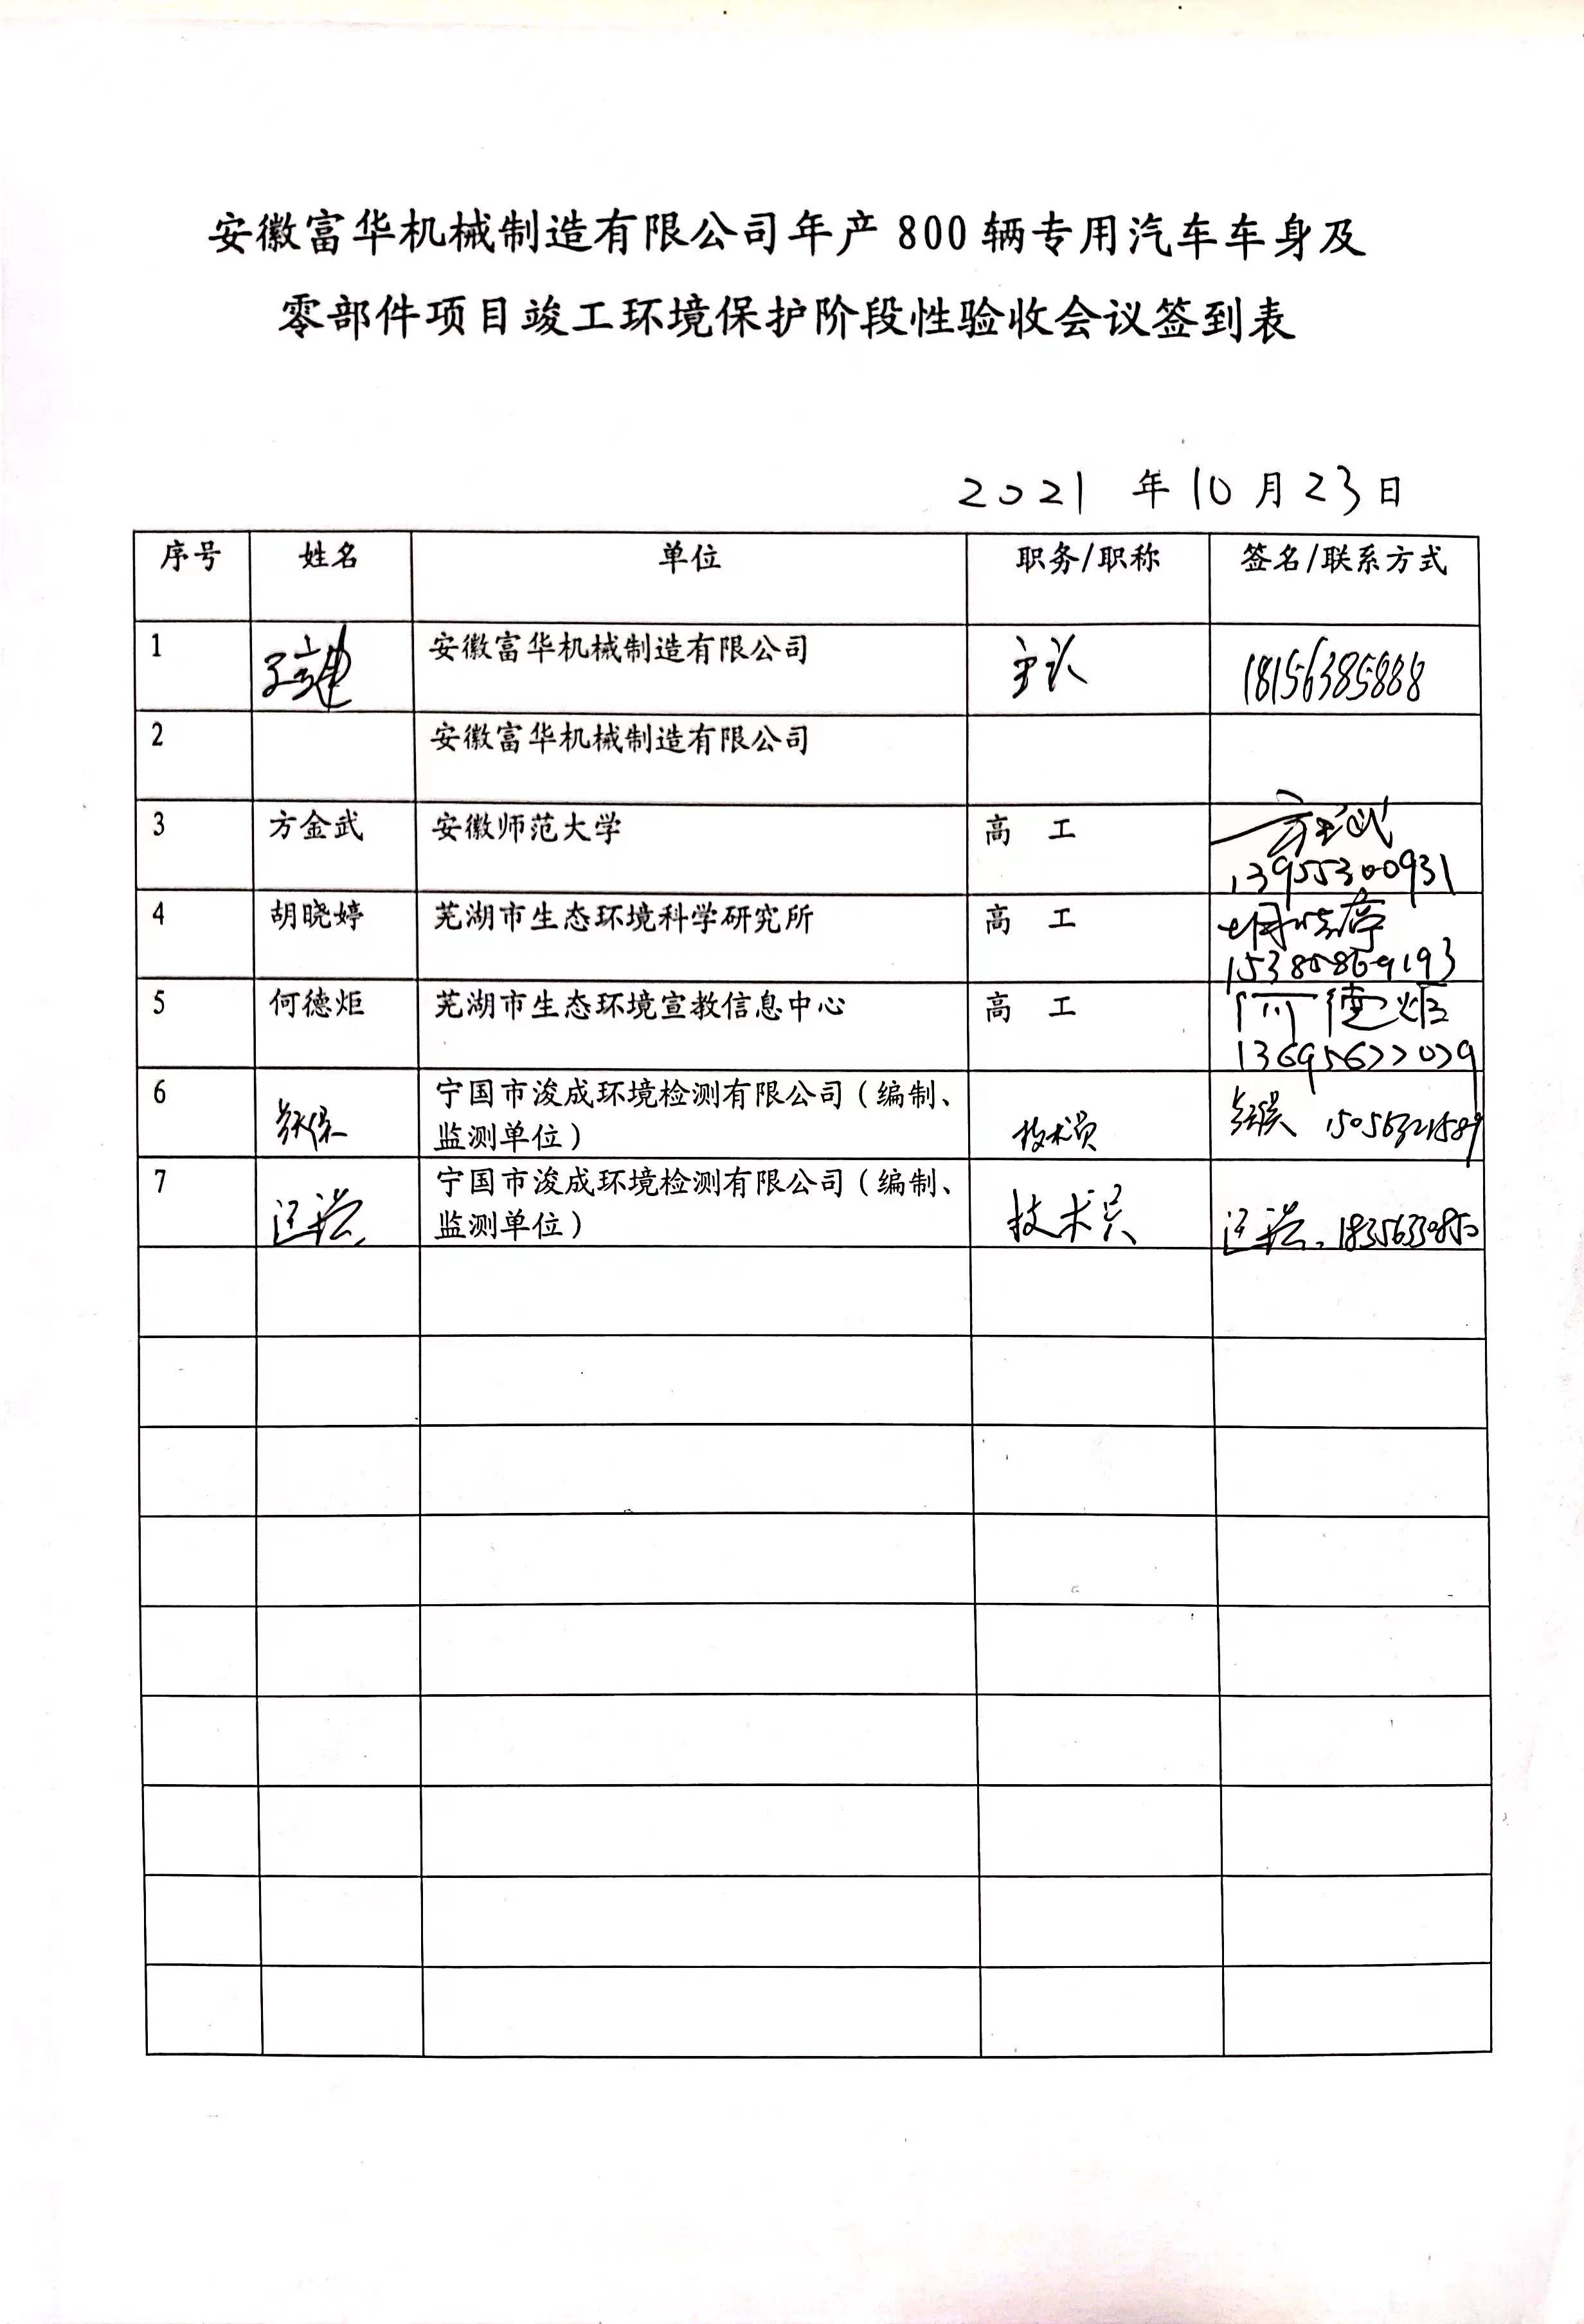 安徽富华机械制造有限公司年产 800 辆专用汽车车身及
零部件项目竣工环境保护阶段性验收会议签到表
2021 年 10 月 23 日
序号 姓名 单位 职务/职称 签名/联系方式
1 安徽富华机械制造有限公司 18156385888
2 安徽富华机械制造有限公司
3 方金武 安徽师范大学 高 工 方金武
13955300931
4 胡晓婷 芜湖市生态环境科学研究所 高 工 胡晓婷
15385869193
5 何德炬 芜湖市生态环境宣教信息中心 高 工 何德炬
13695677079
6 宁国市浚成环境检测有限公司（编制、
监测单位） 技术员
7 汪浩 宁国市浚成环境检测有限公司（编制、
监测单位） 技术员 汪浩